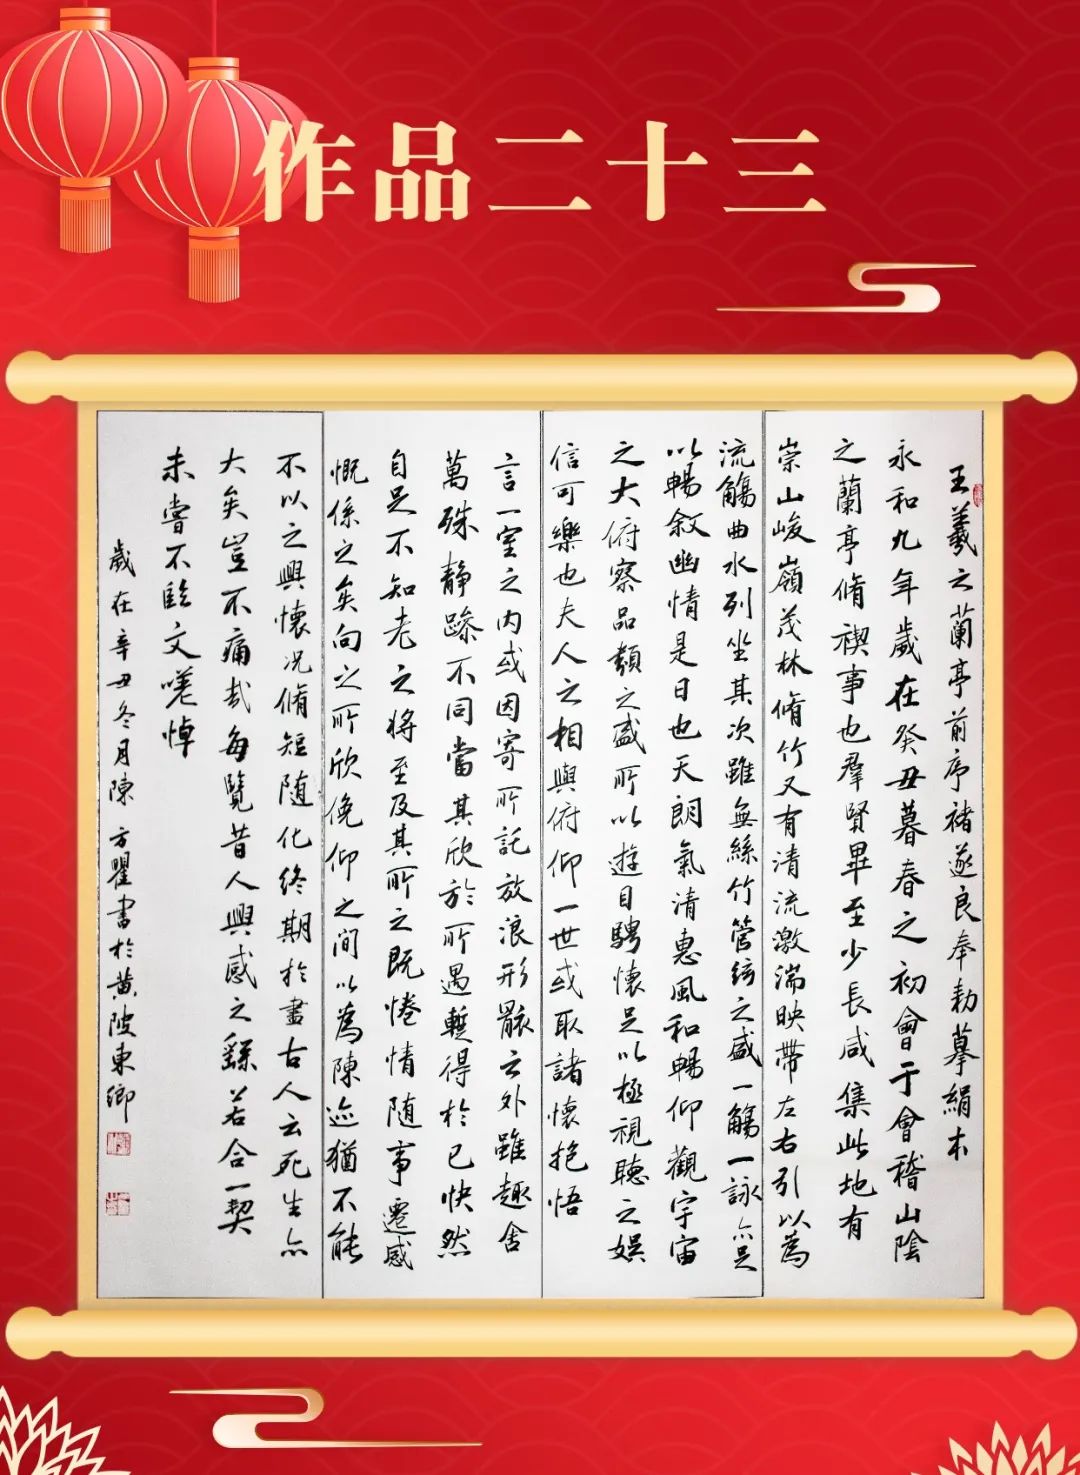 作品二十三
王羲之蘭亭前序褚遂良奉勅摹絹本
永和九年歲在癸丑暮春之初會于會稽山陰
之蘭亭脩禊事也羣賢畢至少長咸集此地有
崇山峻嶺茂林脩竹又有清流激湍映帶左右引以為
流觴曲水列坐其次雖無絲竹管絃之盛一觴一詠亦足
以暢敘幽情是日也天朗氣清惠風和暢仰觀宇宙
之大俯察品類之盛所以遊目騁懷足以極視聽之娛
信可樂也夫人之相與俯仰一世或取諸懷抱悟
言一室之內或因寄所託放浪形骸之外雖趣舍
萬殊靜躁不同當其欣於所遇暫得於己快然
自足不知老之將至及其所之既惓情随事遷感
慨係之矣向之所欣俛仰之間以為陳迹猶不能
不以之興懷况脩短随化終期於盡古人云死生亦
大矣豈不痛哉每覽昔人興感之繇若合一契
未嘗不臨文嗟悼
歲在辛丑冬月陳方瞿書於黄陂東鄉